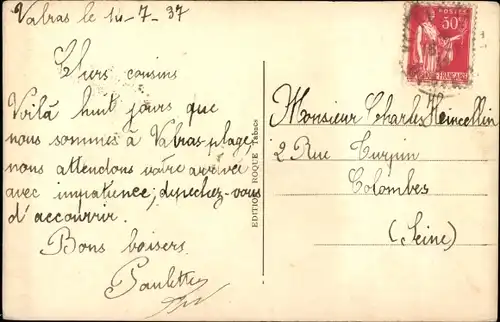 Valras le 14-7-37
Chers cousins
Voilà huit jours que
nous sommes à Valras-plage,
nous attendons votre arrivée
avec impatience, depechez-vous
d'accourrir.
Bons baisers
Paulette
POSTES
50c
FRANÇAISE
Tabacs
Monsieur Charles Heincellin
2 Rue Turpin
Colombes
(Seine)